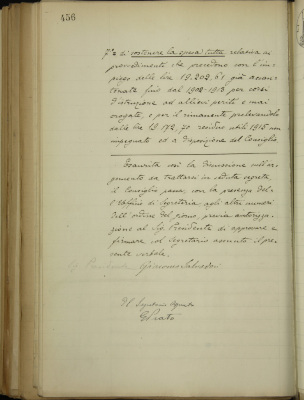 456
7º di sostenere la spesa tutta relativa ai
procedimenti che precedono con l'im-
piego delle lire 19.202,61 già accan-
tonate fino dal 1908-1913 per corsi
d'istruzione ad allievi periti e mai
erogate, e per il rimanente prelevandolo
dalle lire 19.172,70 residuo utili 1915 non
impegnato ed a disposizione del Consiglio
Esaurita così la discussione sull'ar-
gomento da trattarsi in seduta segreta
il Consiglio passa, con la presenza del-
l'Ufficio di Segreteria, agli altri numeri
dell'ordine del giorno, previa autorizza-
zione al Sig. Presidente di approvare e
firmare col Segretario assunto il pre-
sente verbale.
Il Presidente Giacomo Salvadori
Il Segretario
G. Prato